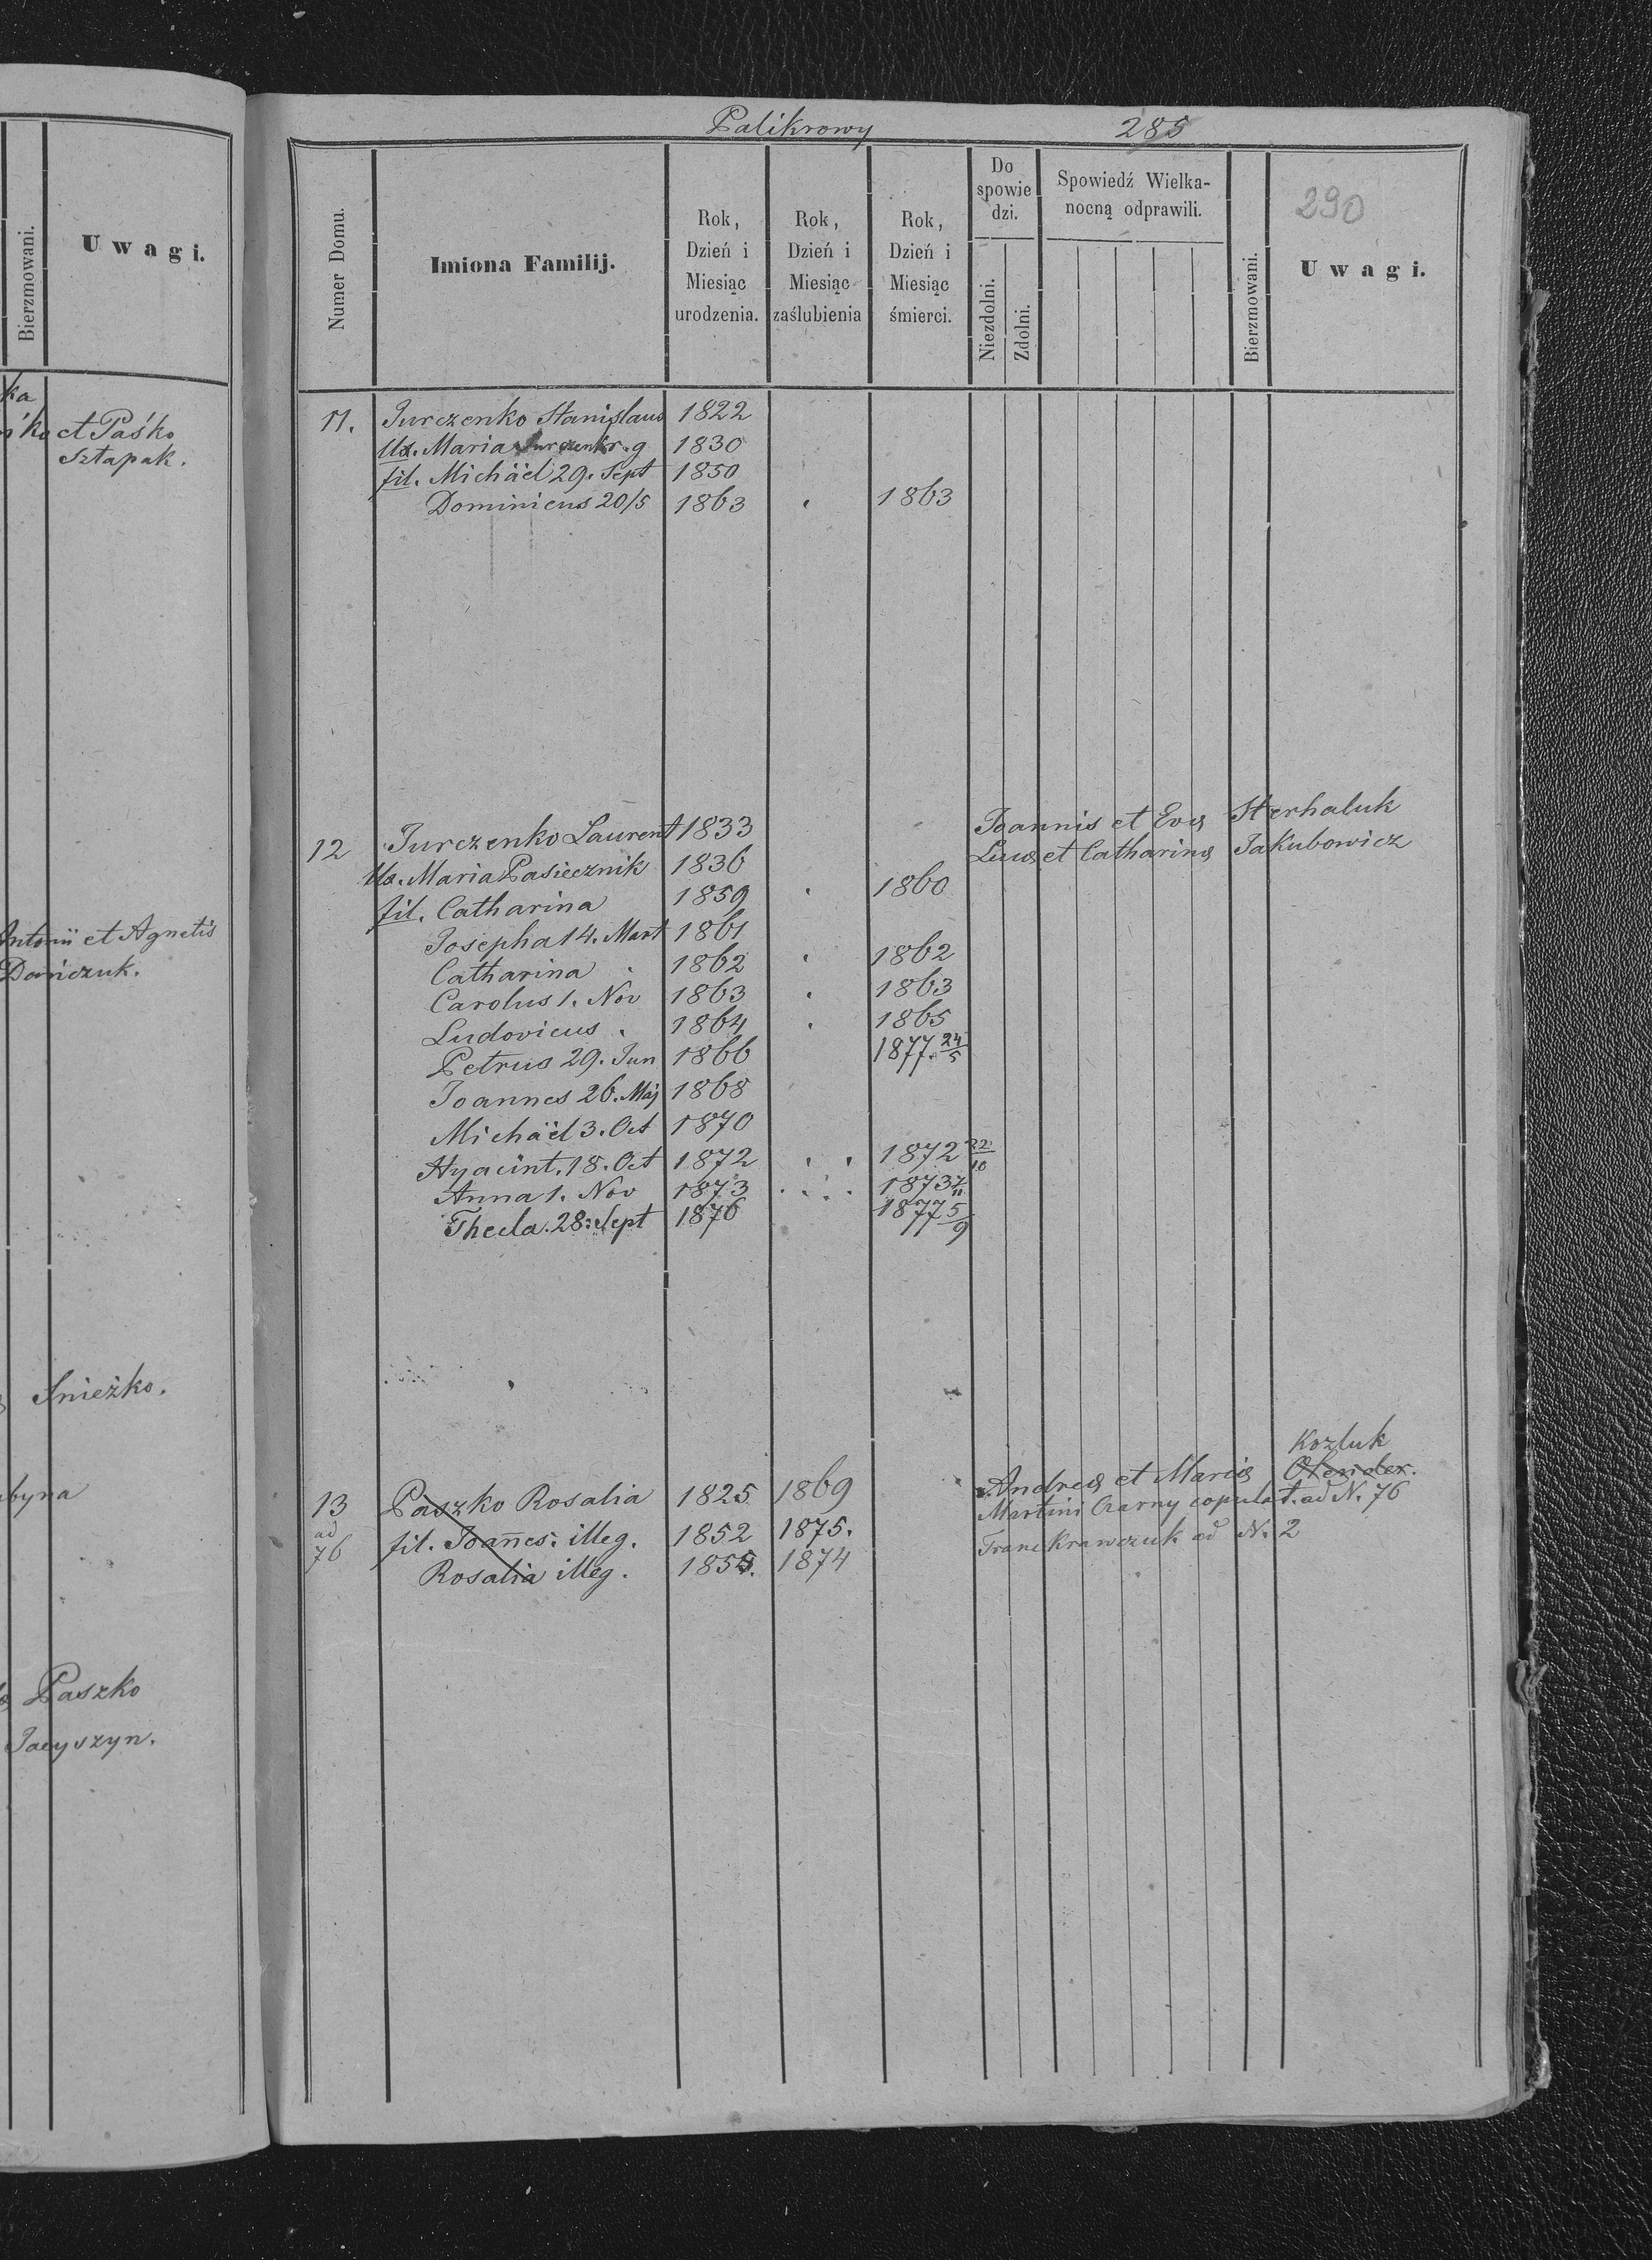 Bierzmowani.
Uwagi.
ka
et Paśko
Sztapak.
Antonii et Agnetis
Dańczuk.
Snieżko.
Paszko
Jacyszyn.
Palikrowy 285
Numer Domu.
Imiona Familij.
Rok, Dzień i Miesiąc urodzenia.
Rok, Dzień i Miesiąc zaślubienia
Rok, Dzień i Miesiąc śmierci.
Do spowiedzi.
Niezdolni.
Zdolni.
Spowiedź Wielkanocną odprawili.
Bierzmowani.
290
Uwagi.
11. Jurczenko Stanislaus 1822
Ux. Maria 1830
fil. Michäel 29. Sept 1850
Dominicus 20/5 1863 1863
12 Jurczenko Laurent 1833 Joannis et Evæ Sterhaluk
Ux. Maria Pasiecznik 1836 Lucæ et Catharinæ Jakubowicz
fil. Catharina 1859 1860
Josepha 14. Mart 1861
Catharina 1862 1862
Carolus 1. Nov 1863 1863
Ludovicus 1864 1865
Petrus 29. Jun 1866 1877. 24/5
Joannes 26. Maj 1868
Michäel 3. Oct 1870
Hyacint. 18. Oct 1872 1872 22/10
Anna 1. Nov 1873 1873 7/11
Thecla. 28. Sept 1876 1877 5/9
Kozluk
13 Paszko Rosalia 1825 1869 Andreæ et Mariæ Olender.
ad 76 fil. Joañes. illeg. 1852 1875. Martini Czarny copulat. ad N. 76
Rosalia illeg. 1855. 1874 Franc Krawczuk ad N. 2